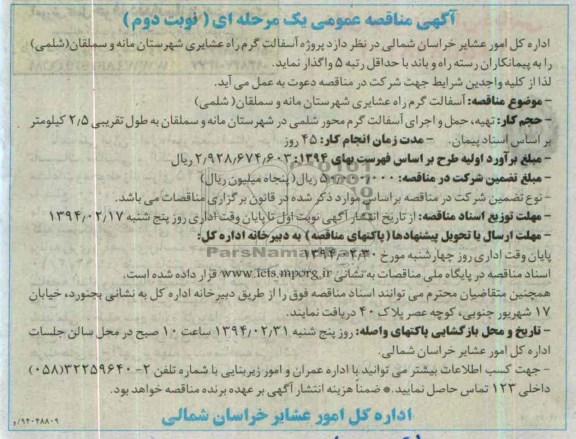 آگهی مناقصه عمومی یک مرحله ای ( نوبت دوم )
اداره کل امور عشایر خراسان شمالی در نظر دارد پروژه آسفالت گرم راه عشایری شهرستان مانه و سملقان(شلمی)
را به پیمانکاران رسته راه و باند با حداقل رتبه ۵ واگذار نماید.
لذا از کلیه واجدین شرایط جهت شرکت در مناقصه دعوت به عمل می آید.
- موضوع مناقصه: آسفالت گرم راه عشایری شهرستان مانه و سملقان( شلمی)
- حجم کار: تهیه، حمل و اجرای آسفالت گرم محور شلمی در شهرستان مانه و سملقان به طول تقریبی ۲/۵ کیلومتر
بر اساس اسناد پیمان. - مدت زمان انجام کار: ۴۵ روز
- مبلغ برآورد اولیه طرح بر اساس فهرست بهای ۱۳۹۴: ۲/۹۲۸/۶۷۴/۶۰۳ ریال
- مبلغ تضمین شرکت در مناقصه: ۵۰/۰۰۰/۰۰۰ ریال( پنجاه میلیون ریال)
- نوع تضمین شرکت در مناقصه بر اساس موارد ذکر شده در قانون برگزاری مناقصات می باشد.
- مهلت توزیع اسناد مناقصه: از تاریخ انتشار آگهی نوبت اول تا پایان وقت اداری روز پنج شنبه ۱۳۹۴/۰۲/۱۷
- مهلت ارسال یا تحویل پیشنهادها ( پاکتهای مناقصه ) به دبیرخانه اداره کل:
پایان وقت اداری روز چهارشنبه مورخ ۱۳۹۴/۰۲/۳۰
ParsNamadData
اسناد مناقصه در پایگاه ملی مناقصات به نشانی www.iets.mporg.ir قرار داده شده است.
همچنین متقاضیان محترم می توانند اسناد مناقصه فوق را از طریق دبیرخانه اداره کل به نشانی بجنورد، خیابان
۱۷ شهریور جنوبی، کوچه عصر پلاک ۴۰ دریافت نمایند.
- تاریخ و محل بازگشایی پاکتهای واصله: روز پنج شنبه ۱۳۹۴/۰۲/۳۱ ساعت ۱۰ صبح در محل سالن جلسات
اداره کل امور عشایر خراسان شمالی.
- جهت کسب اطلاعات بیشتر می توانید با اداره عمران و امور زیربنایی با شماره تلفن ۲- ۳۲۲۵۹۶۴۰(۰۵۸)
داخلی ۱۲۳ تماس حاصل نمایید.* ضمناً هزینه انتشار آگهی بر عهده برنده مناقصه خواهد بود.
اداره کل امور عشایر خراسان شمالی
۹۴۰۴۸۸۰۹/و